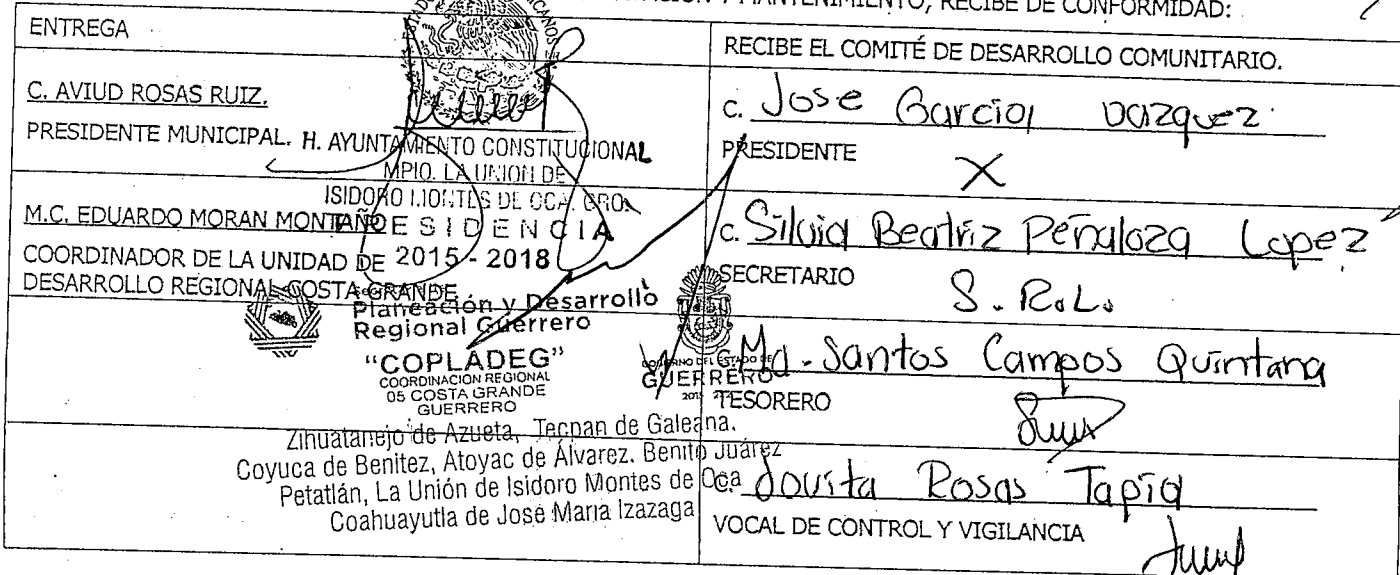 Y MANTENIMIENTO, RECIBE DE CONFORMIDAD:
ENTREGA
C. AVIUD ROSAS RUIZ.
PRESIDENTE MUNICIPAL.
H. AYUNTAMIENTO CONSTITUCIONAL
MPIO. LA UNION DE
ISIDORO MONTES DE OCA, GRO.
PRESIDENCIA
2015 - 2018
M.C. EDUARDO MORAN MONTAÑO
COORDINADOR DE LA UNIDAD DE
DESARROLLO REGIONAL COSTA GRANDE
Planeación y Desarrollo
Regional Guerrero
"COPLADEG"
COORDINACIÓN REGIONAL
05 COSTA GRANDE
GUERRERO
GOBIERNO DEL ESTADO DE
GUERRERO
Zihuatanejo de Azueta, Tecpan de Galeana.
Coyuca de Benitez, Atoyac de Álvarez. Benito Juárez
Petatlán, La Unión de Isidoro Montes de Oca
Coahuayutla de José María Izazaga
RECIBE EL COMITÉ DE DESARROLLO COMUNITARIO.
C. Jose Garcia Vazquez
PRESIDENTE
X
C. Silvia Beatriz Peñaloza Lopez
SECRETARIO
S. R. L.
C. Ma. Santos Campos Quintana
TESORERO
C. Jovita Rosas Tapia
VOCAL DE CONTROL Y VIGILANCIA